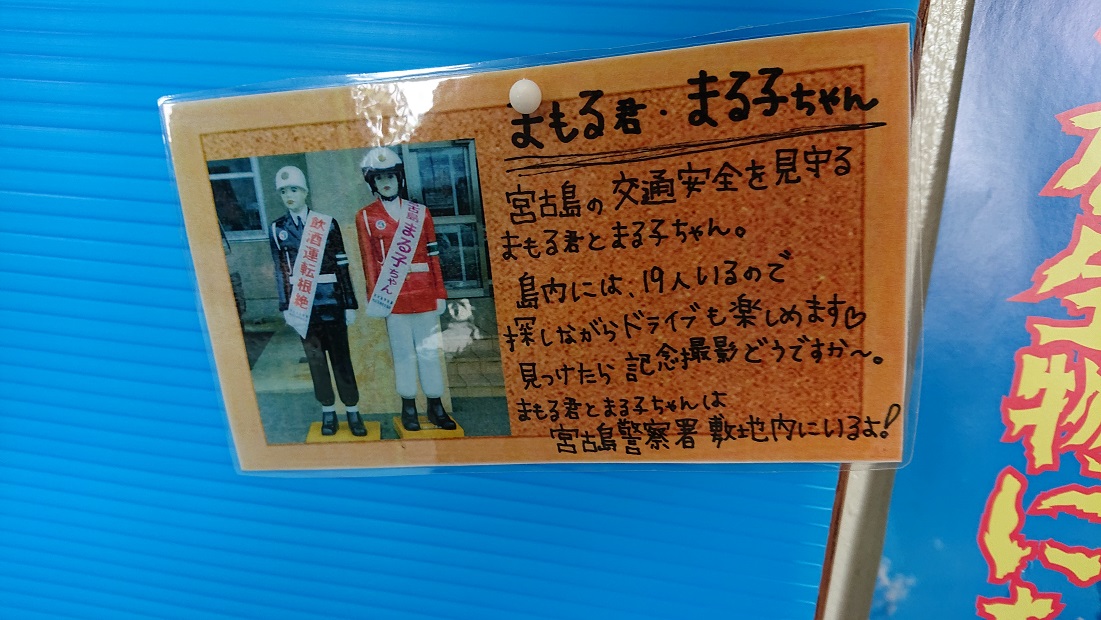 まもる君・まる子ちゃん
宮古島の交通安全を見守る
まもる君とまる子ちゃん。
島内には、19人いるので
探しながらドライブも楽しめます♡
見つけたら記念撮影どうですか〜。
まもる君とまる子ちゃんは
宮古島警察署敷地内にいるよ!
飲酒運転根絶
宮古島まる子ちゃん
生物に